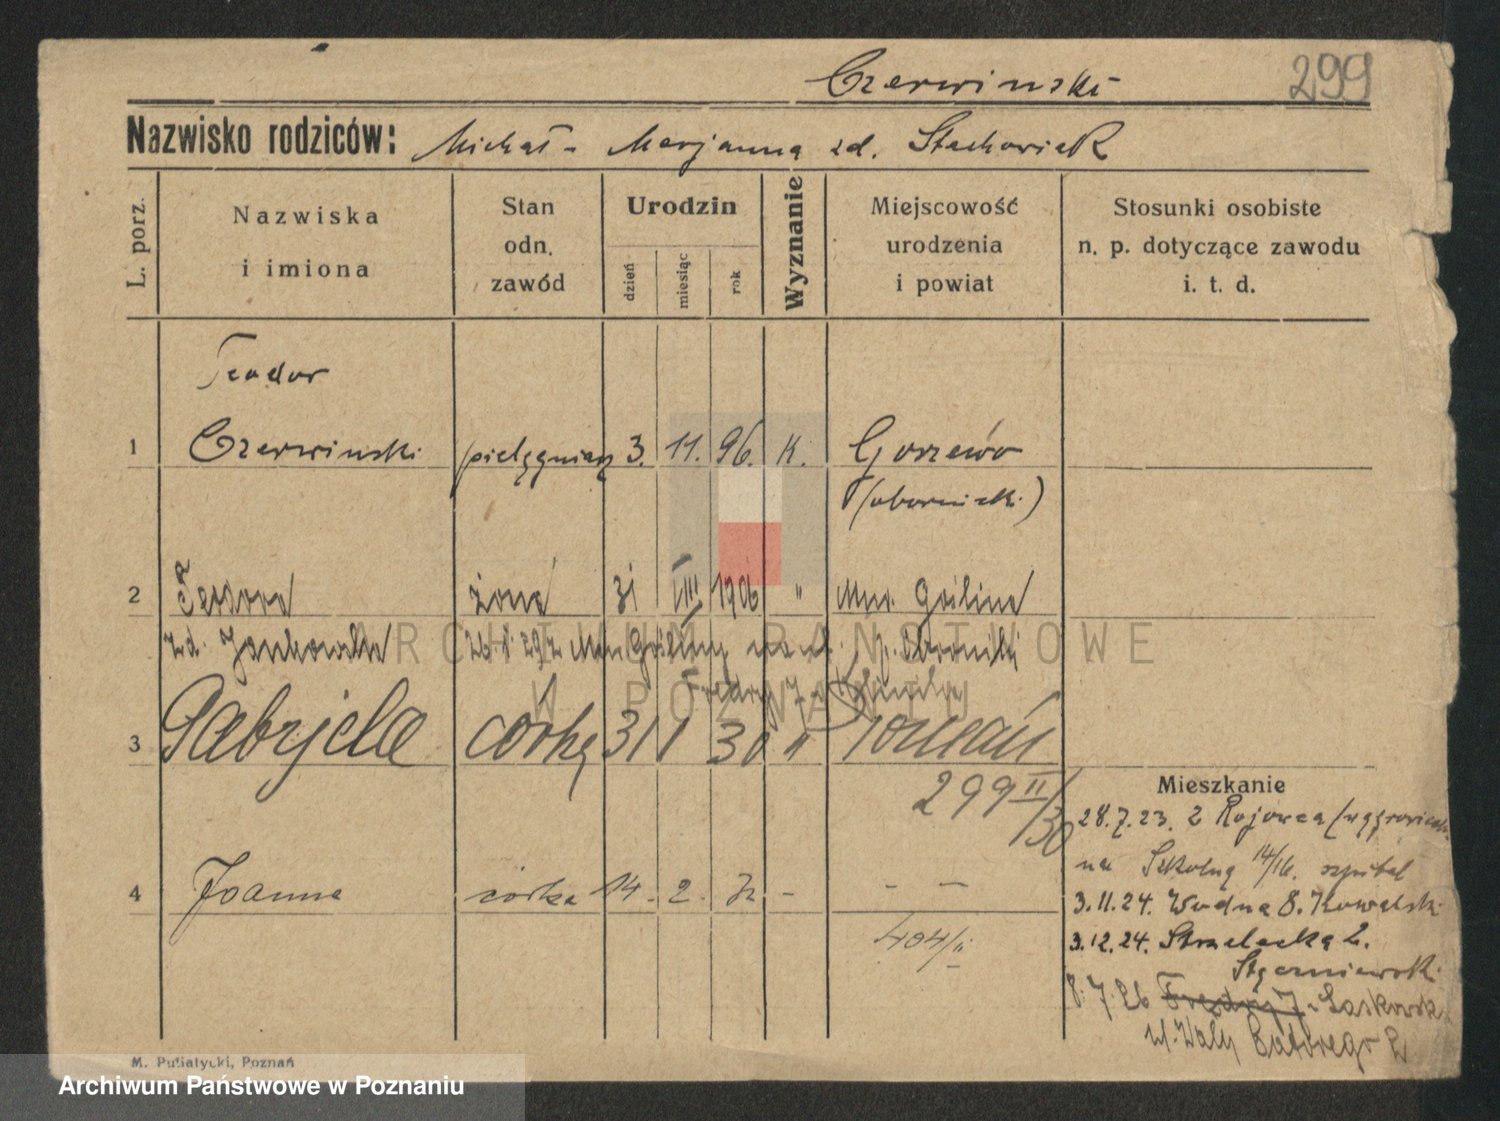 Czerwinski 299
Nazwisko rodziców: Michał - Marjanna zd. Stachowiak
L. porz.
Nazwiska
i imiona
Stan
odn.
zawód
Urodzin
dzień
miesiąc
rok
Wyznanie
Miejscowość
urodzenia
i powiat
Stosunki osobiste
n. p. dotyczące zawodu
i. t. d.
Teodor
1 Czerwinski pielęgniarz 3. 11. 96. K. Gorzewo
(obornicki)
2 Teodora żona 31 VIII 1906 " Mur. Goślina
zd. Jankowska
3 Gabrjela córka 31 1 30 " Poznań
299 II/30
Mieszkanie
28.7.23. z Rojowca (wągrowiecki.
na Szkolną 14/16. szpital
4 Joanna córka 14. 2. 32 - - -
404/II
3.11.24. Wodna 8. Kowalski
3.12.24. Strzelecka 2.
Styczniewski
8.7.26 Fredry 7. Laskowski
ul. Wały Batorego 2
ARCHIWUM PAŃSTWOWE
W POZNANIU
M. Pufiatycki, Poznań
Archiwum Państwowe w Poznaniu